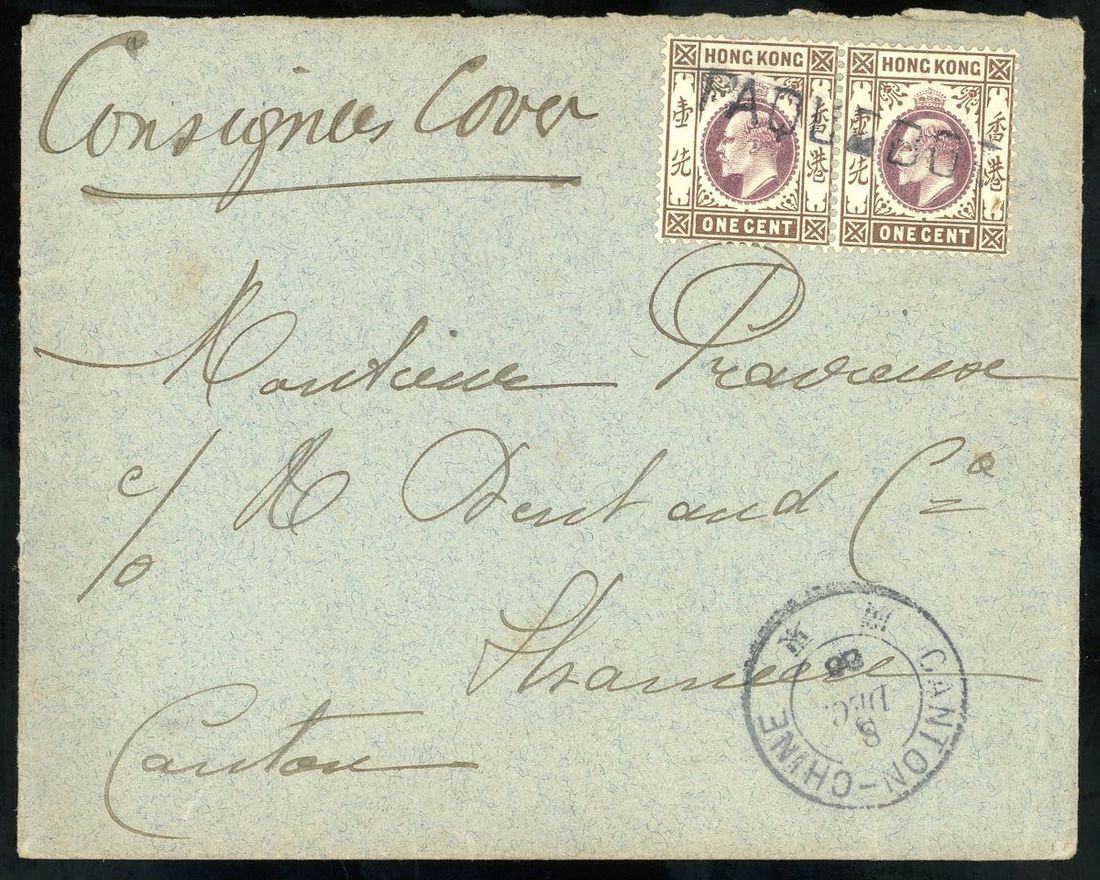 Consignees Cover
HONG KONG HONG KONG
壹先 香港 壹先 香港
PAQUEBO
ONE CENT ONE CENT
Monsieur
c/o Dent and Co
Shameen
Canton
CANTON-CHINE
8
DEC.